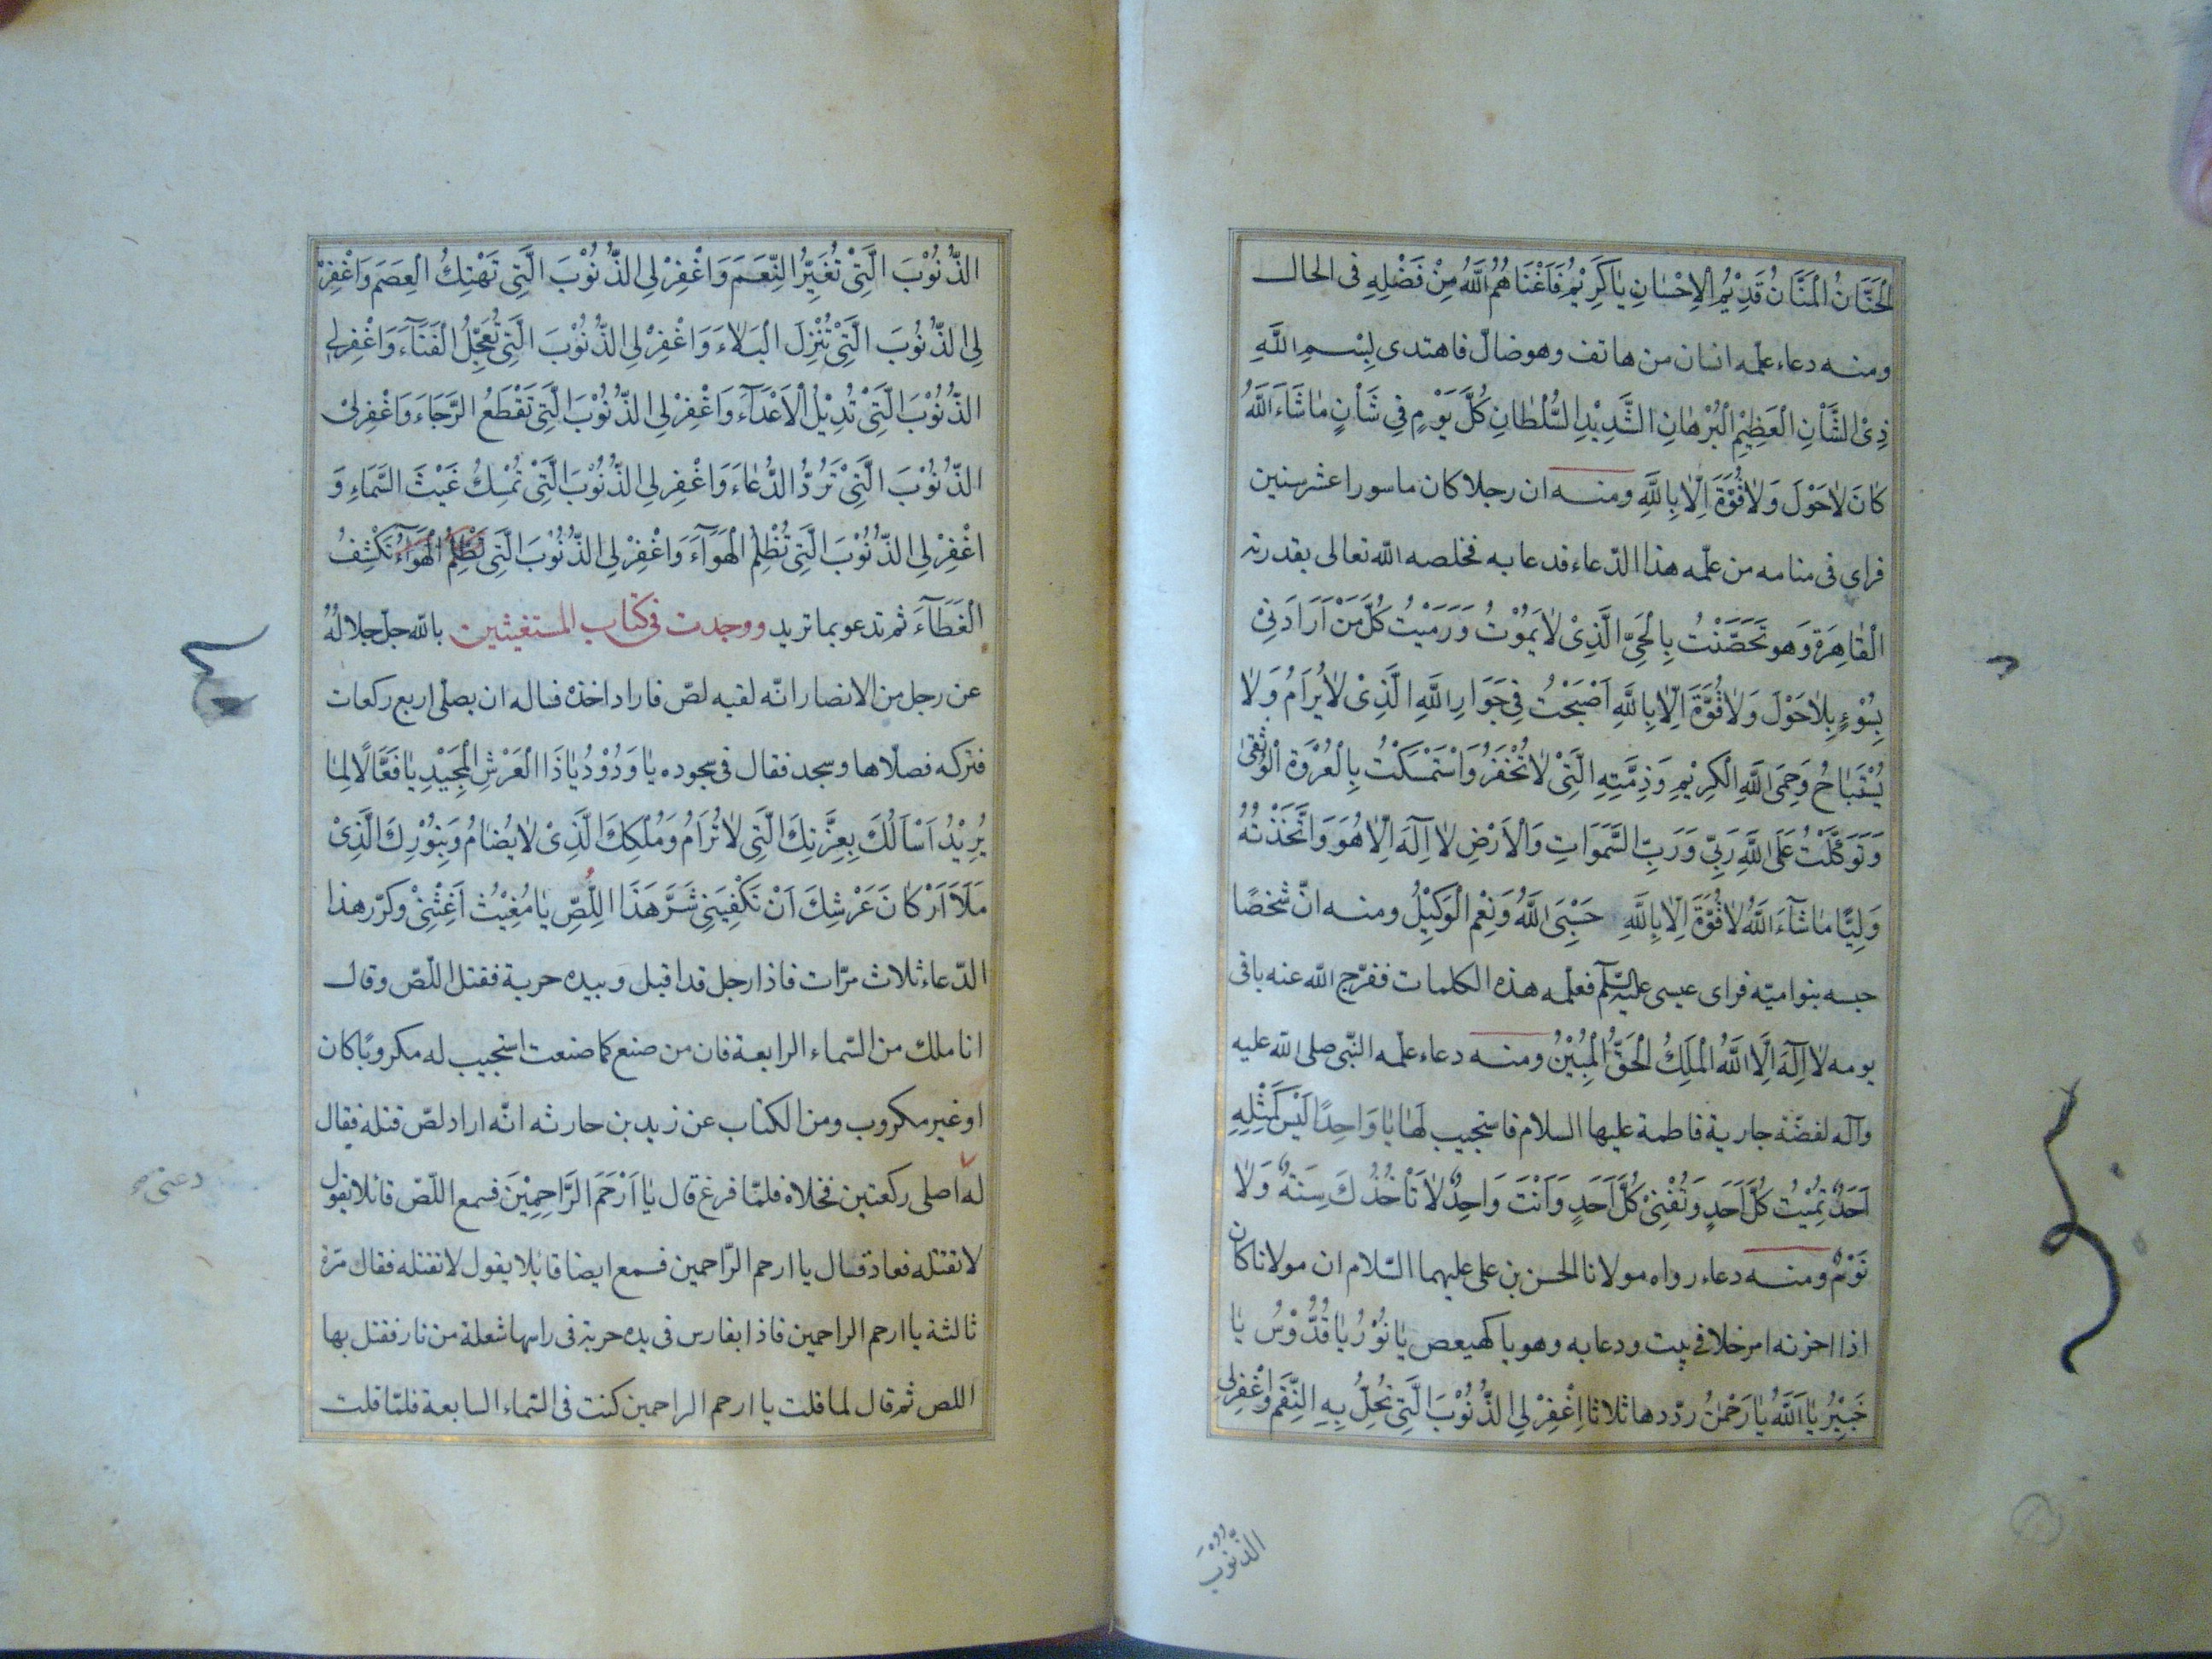 الْحَنَّانُ الْمَنَّانُ قَدِيْمُ الْاِحْسٰانِ يٰاكَرِيْمُ فَاَغْنَاهُمُ اللهُ مِنْ فَضْلِهِ فى الحال
ومنه دعاء علّمه انسان من هاتف وهو ضالّ فاهتدى بِسْمِ اللهِ
ذِىْ الشَّأْنِ الْعَظِيْمِ الْبُرْهٰانِ الشَّدِيْدِ السُّلْطٰانِ كُلَّ يَوْمٍ فِى شَأْنٍ مٰا شٰاءَ اللهُ
كٰانَ لاٰحَوْلَ وَلاٰ قُوَّةَ اِلّاٰ بِاللهِ ومنه ان رجلا كان ماسورا عشر سنين
فراى فى منامه من علّمه هذا الدّعاء فدعا به فخلصه الله تعالى بقدرته
الْقٰاهِرَةِ وَهو تَحَصَّنْتُ بِالْحَىِّ الَّذِىْ لاٰ يَمُوْتُ وَرَمَيْتُ كُلَّ مَنْ اَرَادَنِىْ
بِسُوْءٍ بِلاٰحَوْلَ وَلاٰ قُوَّةَ اِلّاٰ بِاللهِ اَصْبَحْتُ فِى جَوَارِ اللهِ الَّذِىْ لاٰ يُرَامُ وَلاٰ
يُسْتَبٰاحُ وَحِمَى اللهِ الْكَرِيْمِ وَذِمَّتِهِ الَّتِىْ لاٰ تُخْفَرُ وَاسْتَمْسَكْتُ بِالْعُرْوَةِ الْوُثْقٰى
وَتَوَكَّلْتُ عَلَى اللهِ رَبِّى وَرَبِّ السَّمَوَاتِ وَالْاَرْضِ لاٰ اِلٰهَ اِلّاٰ هُوَ وَاتَّخَذْتُهُ
وَلِيًّا مٰا شٰآءَ اللهُ لاٰ قُوَّةَ اِلّاٰ بِاللهِ حَسْبِىَ اللهُ وَنِعْمَ الْوَكِيْلُ ومنه انّ شخصًا
حبسه بنواميّه فراى عيسى عليه السّلم فعلّمه هذه الكلمات ففرّج الله عنه باقى
يومه لاٰ اِلٰهَ اِلَّا اللهُ الْمَلِكُ الْحَقُّ الْمُبِيْنُ ومنه دعاء علّمه النّبى صلى الله عليه
وآله لفضّة جارية فاطمة عليها السلام فاستجيب لَهٰا يٰا وَاحِدًا لَيْسَ كَمِثْلِهِ
اَحَدٌ تُمِيْتُ كُلَّ اَحَدٍ وَتُفْنِىْ كُلَّ اَحَدٍ وَاَنْتَ وَاحِدٌ لاٰ تَأْخُذُكَ سِنَةٌ وَلاٰ
نَوْمٌ ومنه دعاء رواه مولانا الحسن بن على عليهما السّلام ان مولانا كان
اذا احزنه امر خلا فى بيت ودعا به وهو يا كهيعص يٰا نُوْرُ يٰا قُدُّوْسُ يٰا
خَبِيْرُ يٰا اَللهُ يٰا رَحْمٰنُ ردّدها ثلاثا اِغْفِرْ لِى الذُّنُوْبَ الَّتِى تُحِلُّ بِهِ النِّقَمَ وَاغْفِرْلِى
الذُّنُوْبَ
الذُّنُوْبَ الَّتِىْ تُغَيِّرُ النِّعَمَ وَاغْفِرْ لِى الذُّنُوْبَ الَّتِى تَهْتِكُ الْعِصَمَ وَاغْفِرْ
لِى الذُّنُوْبَ الَّتِىْ تُنْزِلُ الْبَلاٰءَ وَاغْفِرْ لِى الذُّنُوْبَ الَّتِى تُعَجِّلُ الْفَنَآءَ وَاغْفِرْلِى
الذُّنُوْبَ الَّتِىْ تُدِيْلُ الْاَعْدَآءَ وَاغْفِرْ لِى الذُّنُوْبَ الَّتِى تَقْطَعُ الرَّجَاءَ وَاغْفِرْلِىْ
الذُّنُوْبَ الَّتِىْ تَرُدُّ الدُّعٰاءَ وَاغْفِرْ لِى الذُّنُوْبَ الَّتِىْ تُمْسِكُ غَيْثَ السَّمَاءِ وَ
اغْفِرْ لِى الذُّنُوْبَ الَّتِى تُظْلِمُ الْهَوَآءَ وَاغْفِرْ لِى الذُّنُوْبَ الَّتِى تُظْلِمُ الْهَوَآءَ تَكْشِفُ
الْغَطَآءَ ثم تدعو بما تريد ووجدت فى كتاب المستغيثين بالله جلّ جلالهُ
عن رجل من الانصار انّه لقيه لصّ فاراد اخذه فساله ان يصلّى اربع ركعات
فتركه فصلّاها وسجد فقال فى سجوده يٰا وَدُوْدُ يٰا ذَا الْعَرْشِ الْمَجِيْدِ يٰا فَعَّالًا لِمٰا
يُرِيْدُ اَسْاَلُكَ بِعِزَّتِكَ الَّتِى لاٰ تُرَامُ وَمُلْكِكَ الَّذِىْ لاٰ يُضٰامُ وَبِنُوْرِكَ الَّذِىْ
مَلَاَ اَرْكٰانَ عَرْشِكَ اَنْ تَكْفِيَنِى شَرَّ هَذَا اللِّصِّ يٰا مُغِيْثُ اَغِثْنِىْ وكرّر هذا
الدّعاء ثلاث مرّات فاذا رجل قد اقبل وبيده حربة فقتل اللّصّ وقال
انا ملك من السّماء الرابعة فان من صنع كما صنعت استجيب له مكروبًا كان
او غير مكروب ومن الكتاب عن زيد بن حارثه انّه اراد لصّ قتله فقال
له اصلى ركعتين فخلاه فلمّا فرغ قال يٰا اَرْحَمَ الرَّاحِمِيْنَ فسمع اللّصّ قائلا يقول
لا تقتله فعاد فقال يا ارحم الرّاحمين فسمع ايضا قائلا يقول لا تقتله فقال مرّة
ثالثة يا ارحم الراحمين فاذا بفارس فى يده حربة فى راسها شعلة من نار فقتل بها
اللص ثم قال لما قلت يا ارحم الراحمين كنت فى السّماء السابعة فلمّا قلت